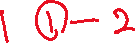 1 ① - 2